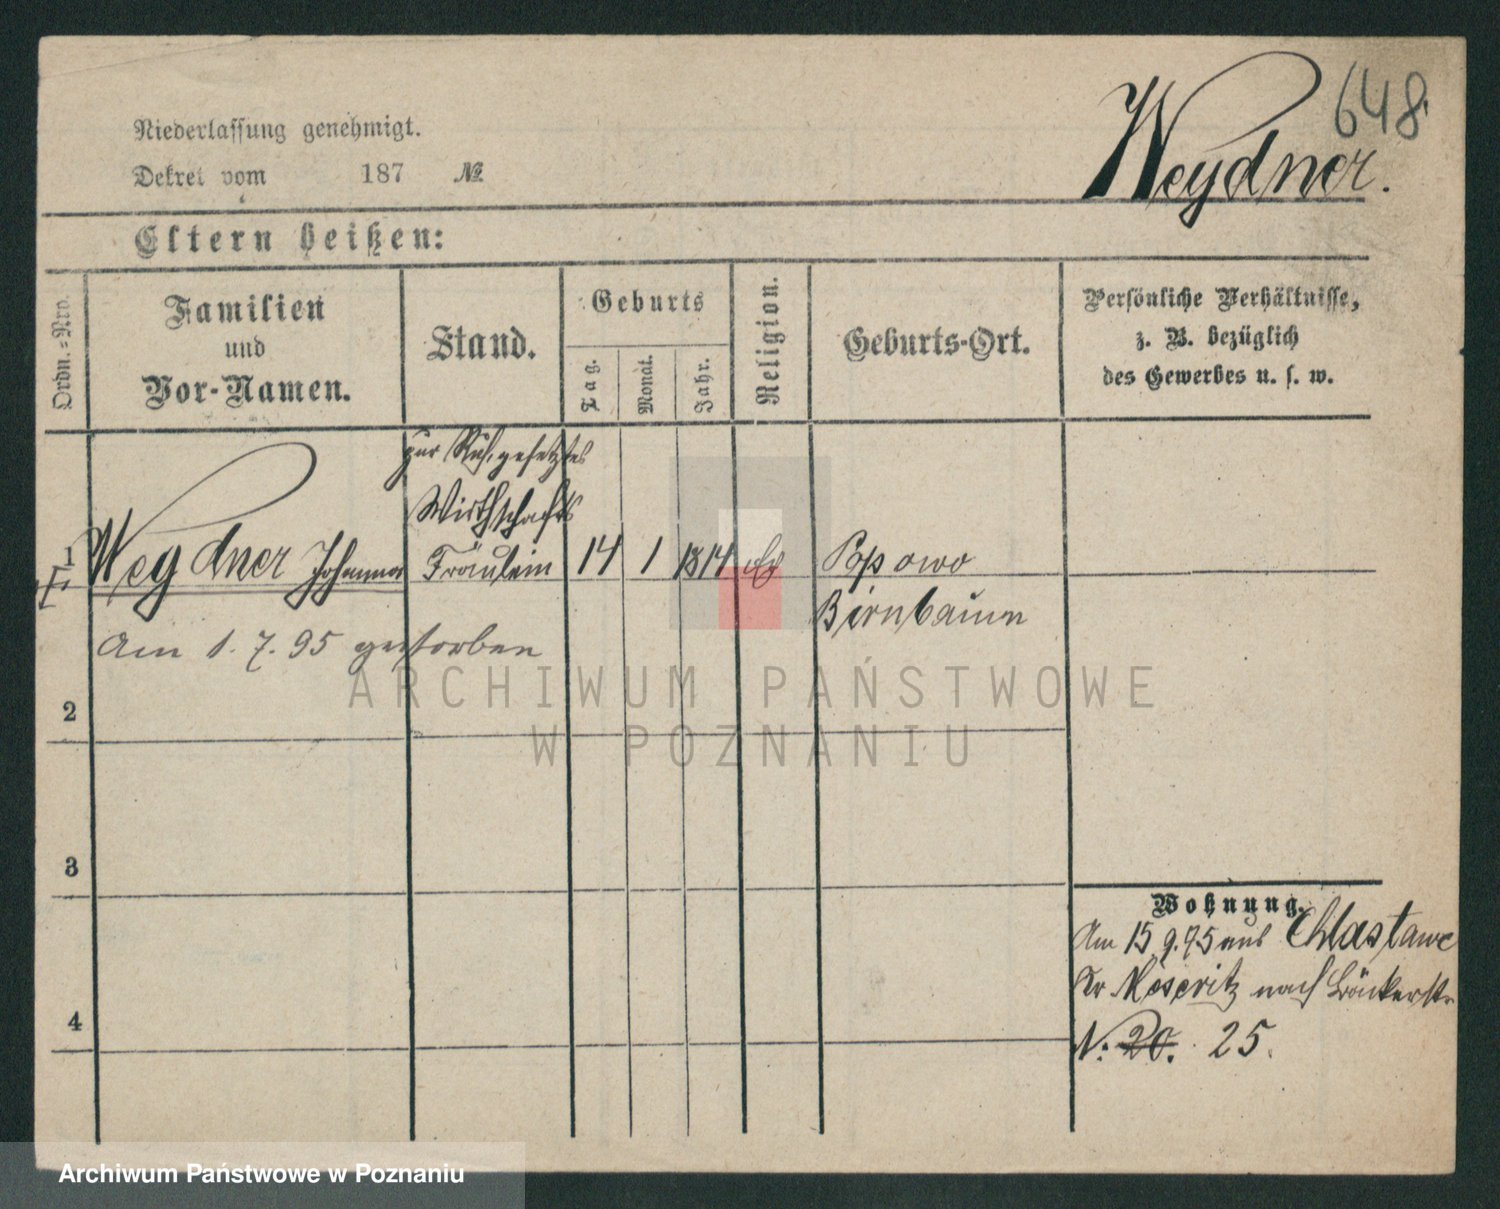 648.
Weydner.
Niederlassung genehmigt.
Dekret vom 187 №
Eltern heißen:
Ordn.=Nro.
Familien
und
Vor-Namen.
Stand.
Geburts
Tag.
Monat.
Jahr.
Religion.
Geburts-Ort.
Persönliche Verhältnisse,
z. B. bezüglich
des Gewerbes u. s. w.
zur Ruh. gesetztes
Wirthschafts
1 Weydner Fräulein 14 1 1814 Popowo
Birnbaum
Am 1. 7. 95 gestorben
2
3
4
Wohnung.
Am 15. 9. 75 aus Chlastawe
Kr Meseritz nach Bäckerstr
N: 20. 25.
ARCHIWUM PAŃSTWOWE
W POZNANIU
Archiwum Państwowe w Poznaniu